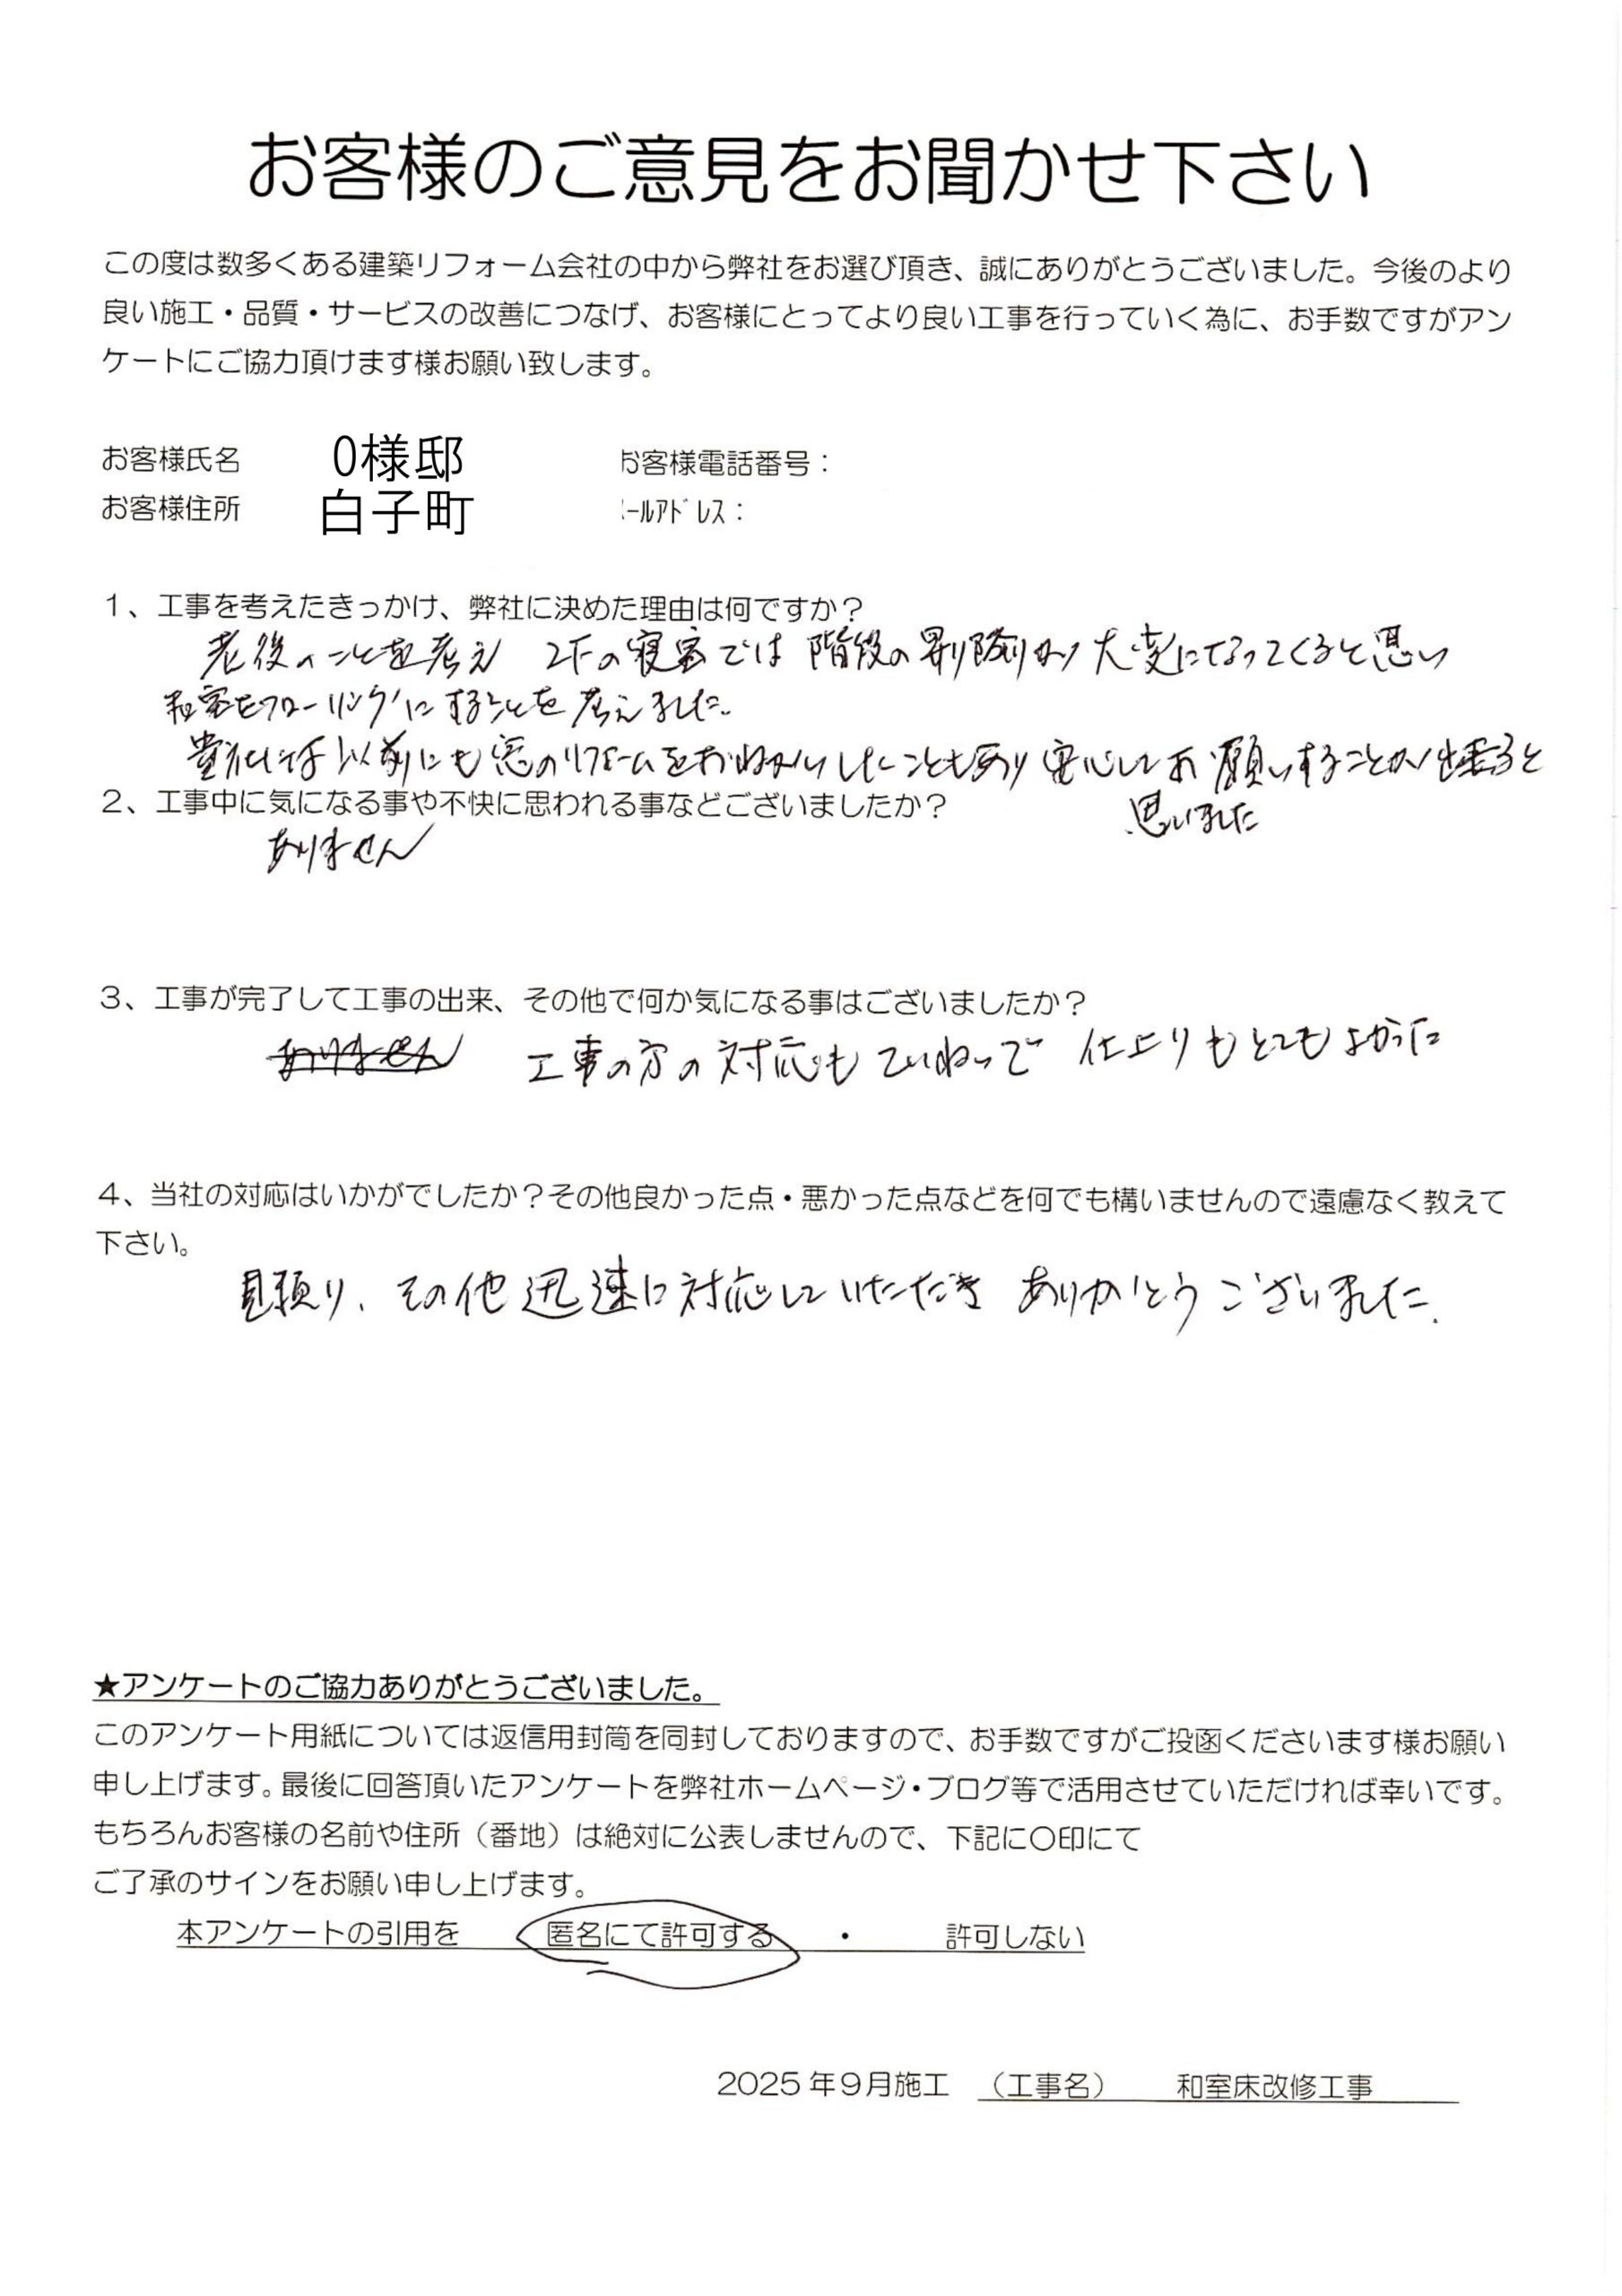 お客様のご意見をお聞かせ下さい
この度は数多くある建築リフォーム会社の中から弊社をお選び頂き、誠にありがとうございました。今後のより
良い施工・品質・サービスの改善につなげ、お客様にとってより良い工事を行っていく為に、お手数ですがアン
ケートにご協力頂けます様お願い致します。
お客様氏名 O様邸 お客様電話番号：
お客様住所 白子町 ールアドレス：
1、工事を考えたきっかけ、弊社に決めた理由は何ですか？
老後のことを考え 2Fの寝室では階段の昇り降りが大変になってくると思い
和室をフローリングにすることを考えました。
貴社には以前にも窓のリフォームをおねがいしたこともあり安心してお願いすることが出来ると
思いました
2、工事中に気になる事や不快に思われる事などございましたか？
ありません
3、工事が完了して工事の出来、その他で何か気になる事はございましたか？
ありません 工事の方の対応もていねいで 仕上りもとてもよかった
4、当社の対応はいかがでしたか？その他良かった点・悪かった点などを何でも構いませんので遠慮なく教えて
下さい。
見積り、その他迅速に対応していただき ありがとうございました.
★アンケートのご協力ありがとうございました。
このアンケート用紙については返信用封筒を同封しておりますので、お手数ですがご投函くださいます様お願い
申し上げます。最後に回答頂いたアンケートを弊社ホームページ・ブログ等で活用させていただければ幸いです。
もちろんお客様の名前や住所（番地）は絶対に公表しませんので、下記に〇印にて
ご了承のサインをお願い申し上げます。
本アンケートの引用を 匿名にて許可する ・ 許可しない
2025年9月施工 （工事名） 和室床改修工事